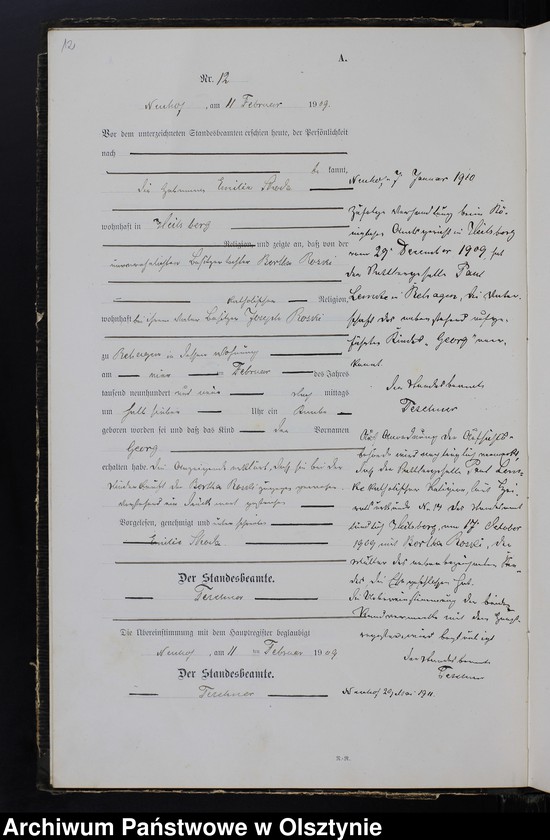 12
A.
Nr. 12
Neuhof, am 11 Februar 1909.
Vor dem unterzeichneten Standesbeamten erschien heute, der Persönlichkeit
nach
be kannt,
die Hebamme Emilie Skoda
wohnhaft in Heilsberg
Religion, und zeigte an, daß von der
unverehelichten Besitzertochter Bertha Roski
katholischen Religion,
wohnhaft bei ihrem Vater Besitzer Joseph Roski
zu Rehagen in dessen Wohnung
am vier Februar des Jahres
tausend neunhundert und neun mittags
um halb sieben Uhr ein Knabe
geboren worden sei und daß das Kind den Vornamen
Georg
erhalten habe. Die Anzeigende erklärt, daß sie bei der
Niederkunft der Bertha Roski zugegen gewesen
Vorstehend ein Druckwort gestrichen
Vorgelesen, genehmigt und unterschrieben
Emilie Skoda
Der Standesbeamte.
Teschner
Die Übereinstimmung mit dem Hauptregister beglaubigt
Neuhof, am 11 ten Februar 1909
Der Standesbeamte.
Teschner
Neuhof, 7 Januar 1910
Zufolge Verhandlung beim Kö-
niglichen Amtsgericht in Heilsberg
vom 29. Dezember 1909 hat
der Paul
Lemke in Rehagen, die Vater-
schaft des nebenstehend aufge-
führten Kindes "Georg" aner-
kannt.
Der Standesbeamte
Teschner
Auf Anordnung der Aufsichts-
behörde wird nachträglich vermerkt,
daß der Paul Lem-
ke katholischer Religion laut Hei-
ratsurkunde No. 14 des Standesamt
Heilsberg, am 17. October
1909 mit Bertha Roski, der
Mutter des nebenbezeichneten Kin-
des die Ehe geschlossen hat.
Die Uebereinstimmung der beiden
Randvermerke mit dem Haupt-
register wird bestätigt
Der Standesbeamte
Teschner
Neuhof 20 Mai 1911.
Archiwum Państwowe w Olsztynie